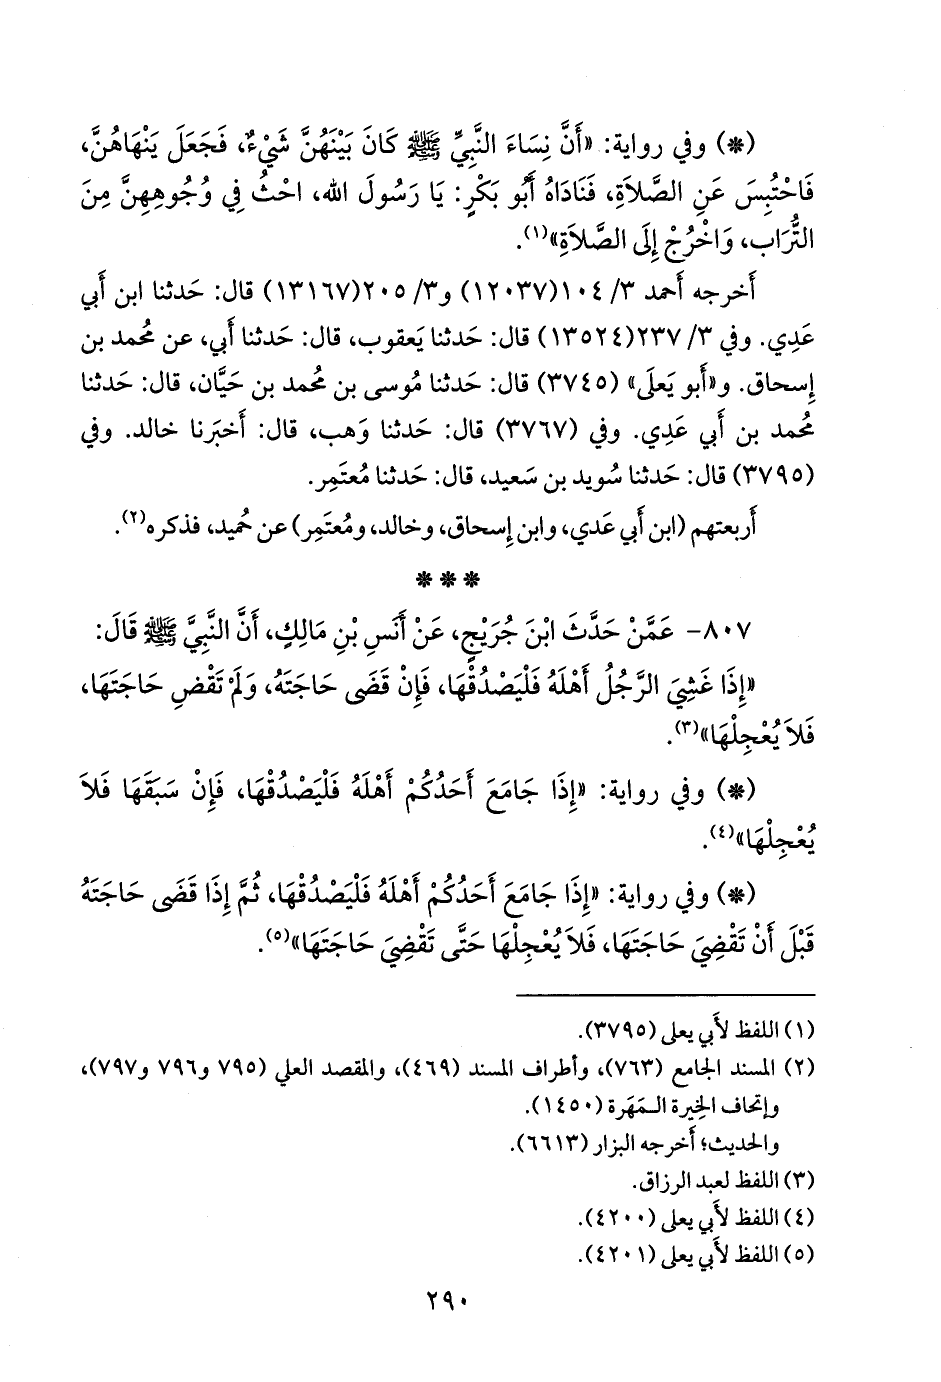 (*) وفي رواية: «أَنَّ نِسَاءَ النَّبِيِّ ﷺ كَانَ بَيْنَهُنَّ شَيْءٌ، فَجَعَلَ يَنْهَاهُنَّ،
فَاحْتُبِسَ عَنِ الصَّلاَةِ، فَنَادَاهُ أَبُو بَكْرٍ: يَا رَسُولَ الله، احْثُ فِي وُجُوهِهِنَّ مِنَ
التُّرَاب، وَاخْرُجْ إِلَى الصَّلاَةِ»(١).
أَخرجه أحمد ٣/ ١٠٤(١٢٠٣٧) و٣/ ٢٠٥(١٣١٦٧) قال: حَدثنا ابن أَبي
عَدِي. وفي ٣/ ٢٣٧(١٣٥٢٤) قال: حَدثنا يَعقوب، قال: حَدثنا أَبي، عن مُحمد بن
إِسحاق. و«أَبو يَعلَى» (٣٧٤٥) قال: حَدثنا مُوسى بن مُحمد بن حَيَّان، قال: حَدثنا
مُحمد بن أَبي عَدِي. وفي (٣٧٦٧) قال: حَدثنا وَهب، قال: أَخبَرنا خالد. وفي
(٣٧٩٥) قال: حَدثنا سُويد بن سَعيد، قال: حَدثنا مُعتَمِر.
أَربعتهم (ابن أَبي عَدي، وابن إِسحاق، وخالد، ومُعتَمِر) عن حُميد، فذكره(٢).
* * *
٨٠٧- عَمَّنْ حَدَّثَ ابْنَ جُرَيْجٍ، عَنْ أَنَسِ بْنِ مَالِكٍ، أَنَّ النَّبِيَّ ﷺ قَالَ:
«إِذَا غَشِيَ الرَّجُلُ أَهْلَهُ فَلْيَصْدُقْهَا، فَإِنْ قَضَى حَاجَتَهُ، وَلَمْ تَقْضِ حَاجَتَهَا،
فَلاَ يُعْجِلْهَا»(٣).
(*) وفي رواية: «إِذَا جَامَعَ أَحَدُكُمْ أَهْلَهُ فَلْيَصْدُقْهَا، فَإِنْ سَبَقَهَا فَلاَ
يُعْجِلْهَا»(٤).
(*) وفي رواية: «إِذَا جَامَعَ أَحَدُكُمْ أَهْلَهُ فَلْيَصْدُقْهَا، ثُمَّ إِذَا قَضَى حَاجَتَهُ
قَبْلَ أَنْ تَقْضِيَ حَاجَتَهَا، فَلاَ يُعْجِلْهَا حَتَّى تَقْضِيَ حَاجَتَهَا»(٥).
(١) اللفظ لأَبي يعلى (٣٧٩٥).
(٢) المسند الجامع (٧٦٣)، وأطراف المسند (٤٦٩)، والمقصد العلي (٧٩٥ و٧٩٦ و٧٩٧)،
وإتحاف الخِيرة المَهَرة (١٤٥٠).
والحديث؛ أَخرجه البزار (٦٦١٣).
(٣) اللفظ لعبد الرزاق.
(٤) اللفظ لأَبي يعلى (٤٢٠٠).
(٥) اللفظ لأَبي يعلى (٤٢٠١).
٢٩٠